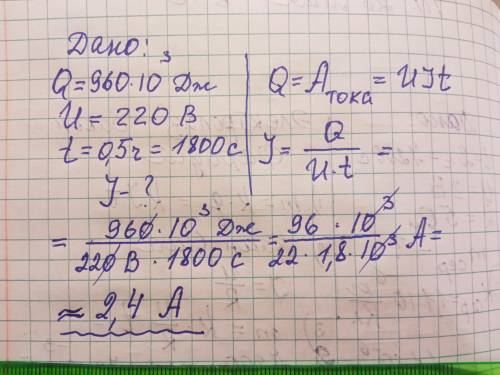 Дано:
Q=960·10³ Дж
U = 220 В
t=0,5ч = 1800 с
J-?
Q=Aтока = UJt
J= Q/U·t =
= 960·10³ Дж/220 В · 1800 с = 96·10³/22·1,8·10³ A=
≈ 2,4 A